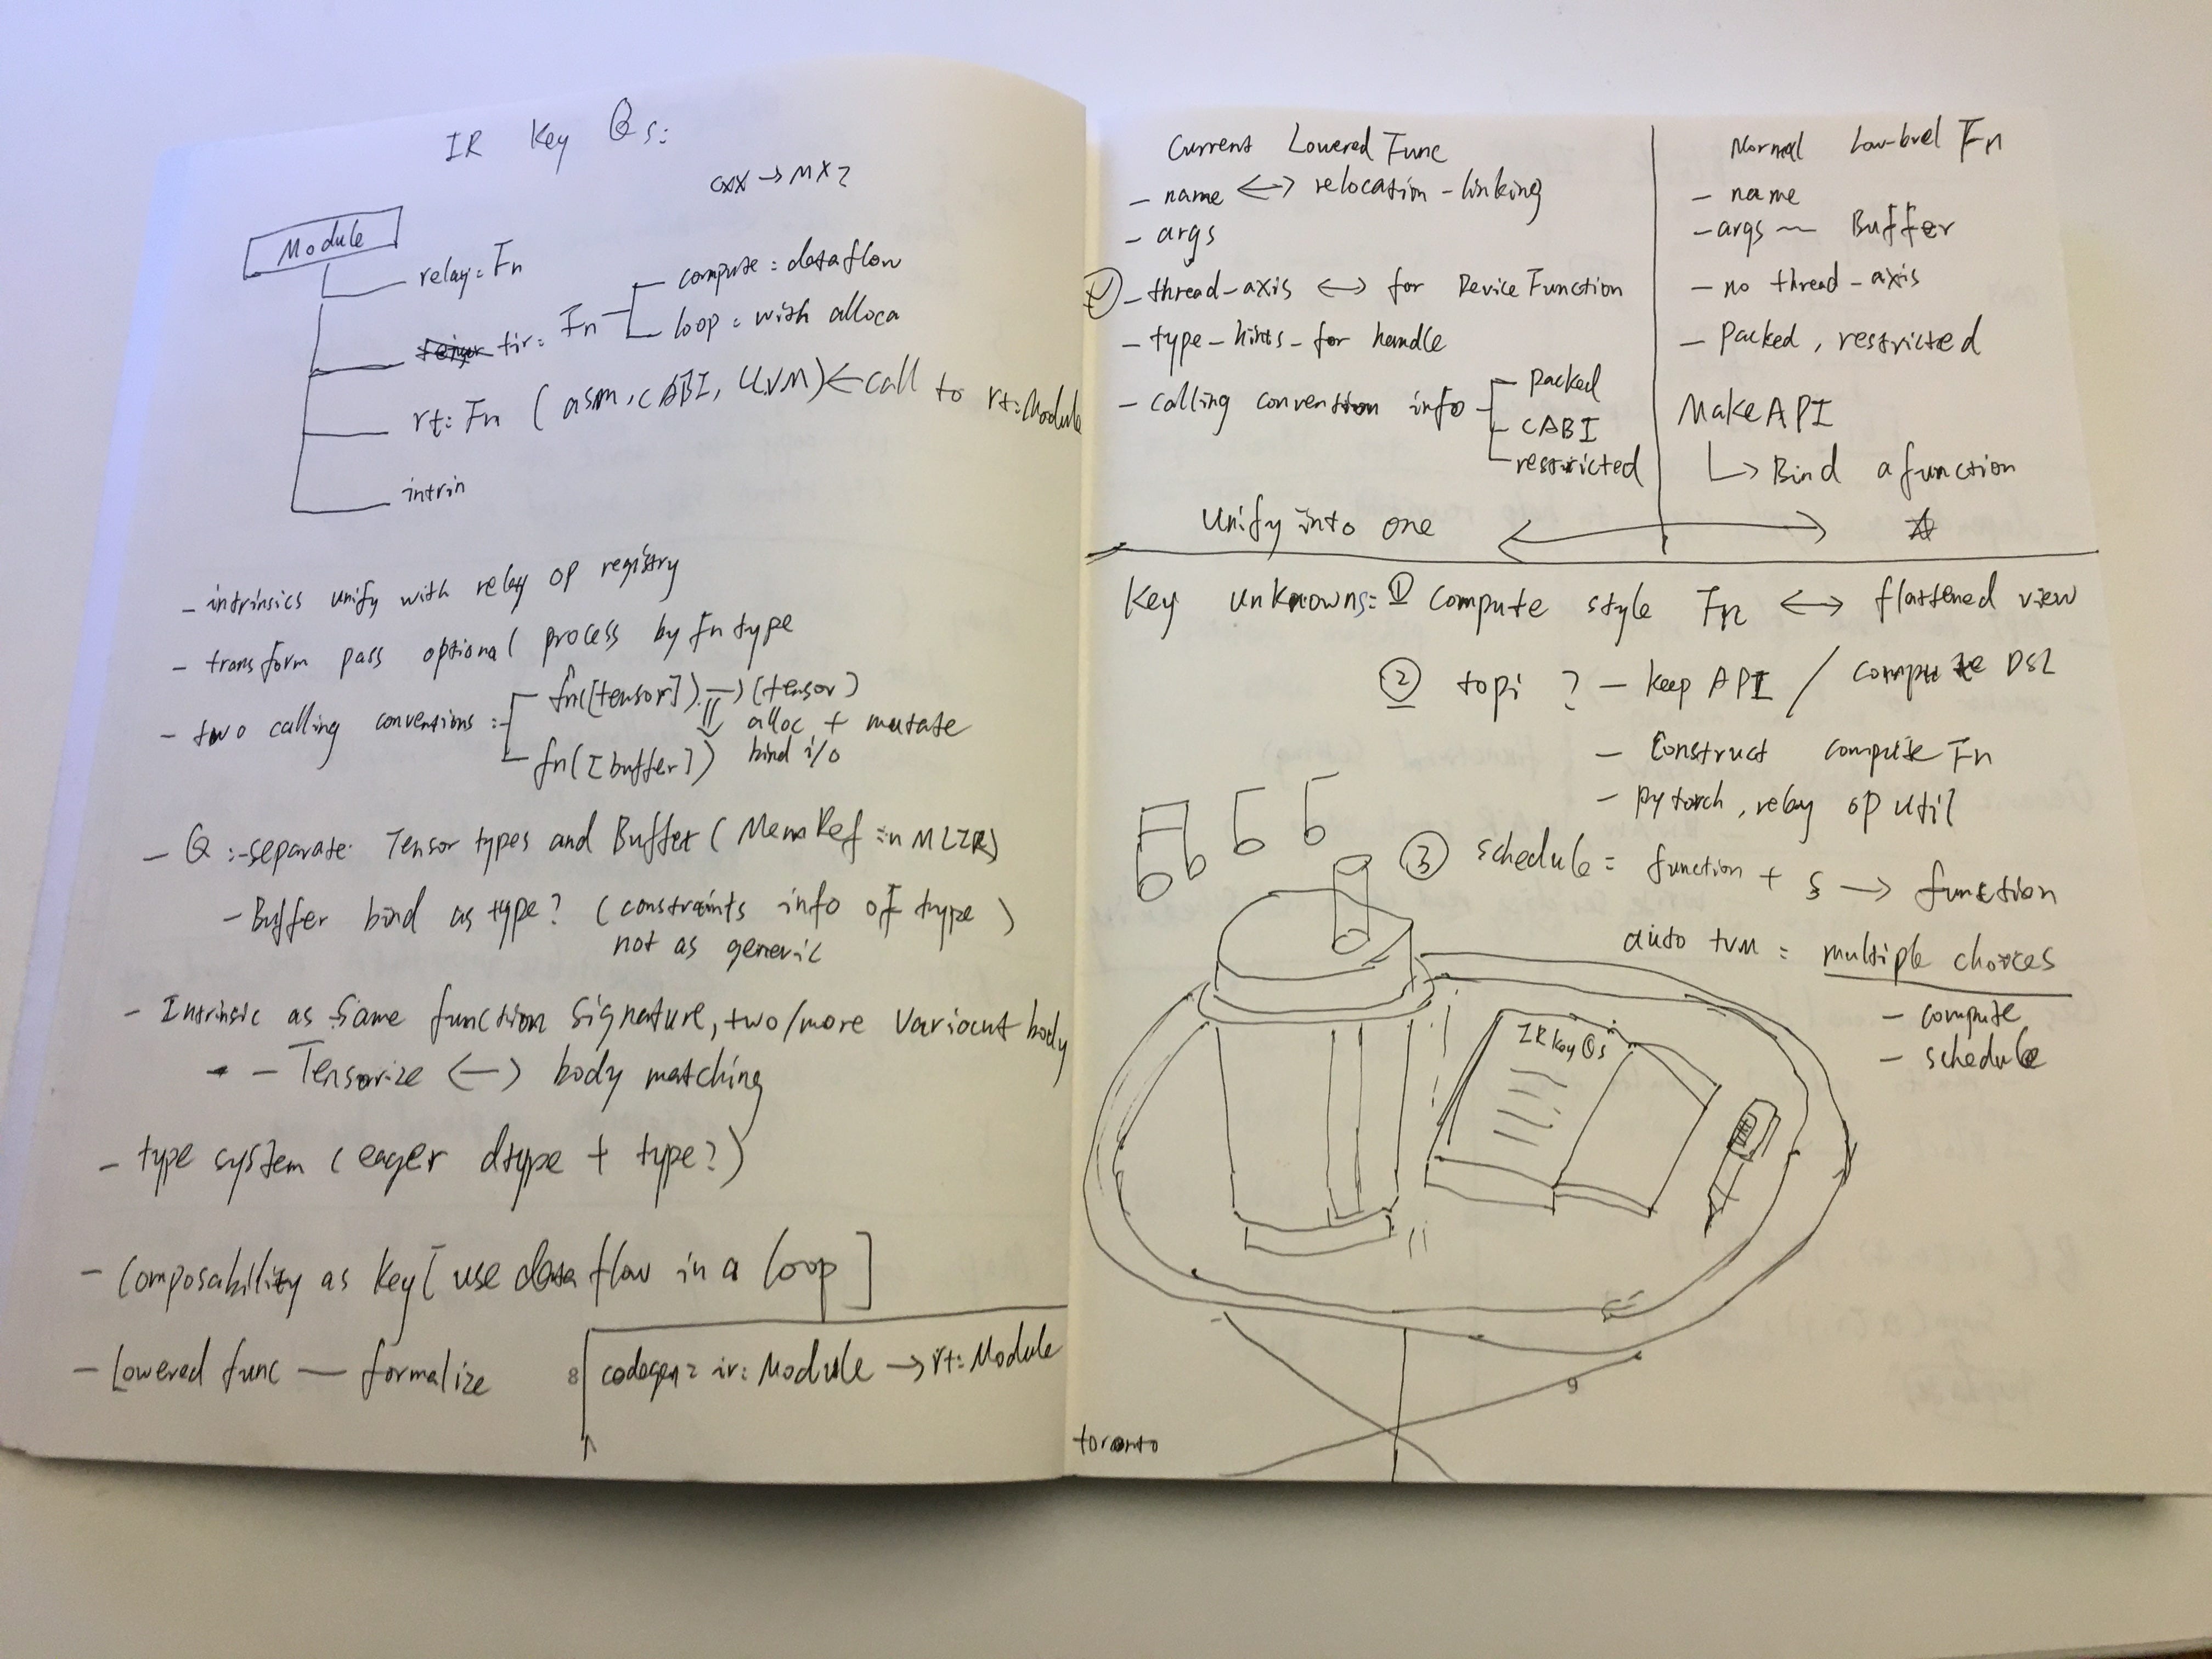 IR Key Qs:
cxx → MXZ
Module
relay: Fn
tir: Fn
compute: dataflow
loop: with alloca
rt: Fn (asm, CABI, LLVM) ← call to rt: Module
intrin
- intrinsics unify with relay op registry
- transform pass optional process by fn type
- two calling conventions:
fn([tensor]) → (tensor)
⇓ alloc + mutate
fn([buffer]) bind i/o
- Q: - separate Tensor types and Buffer (MemRef in MLIR)
- Buffer bind as type? (constraints info of type)
not as generic
- Intrinsic as same function signature, two/more variant body
- Tensorize <-> body matching
- type system (eager dtype + type?)
- Composability as key [use dataflow in a loop]
- Lowered func — formalize
8
codegen: ir: Module → rt: Module
Current Lowered Func
- name <-> relocation - linking
- args
- thread-axis <-> for Device Function
- type-hints-for handle
- calling convention info
packed
CABI
restricted
Normal Low-level Fn
- name
- args ~ Buffer
- no thread-axis
- Packed, restricted
Make API
↳ Bind a function
Unify into one
Key unknowns: ① Compute style Fn <-> flattened view
② topi ? - keep API / compute DSL
- Construct compute Fn
- pytorch, relay op util
③ schedule: function + s → function
auto tvm: multiple choices
- compute
- schedule
IR key Qs
9
toronto